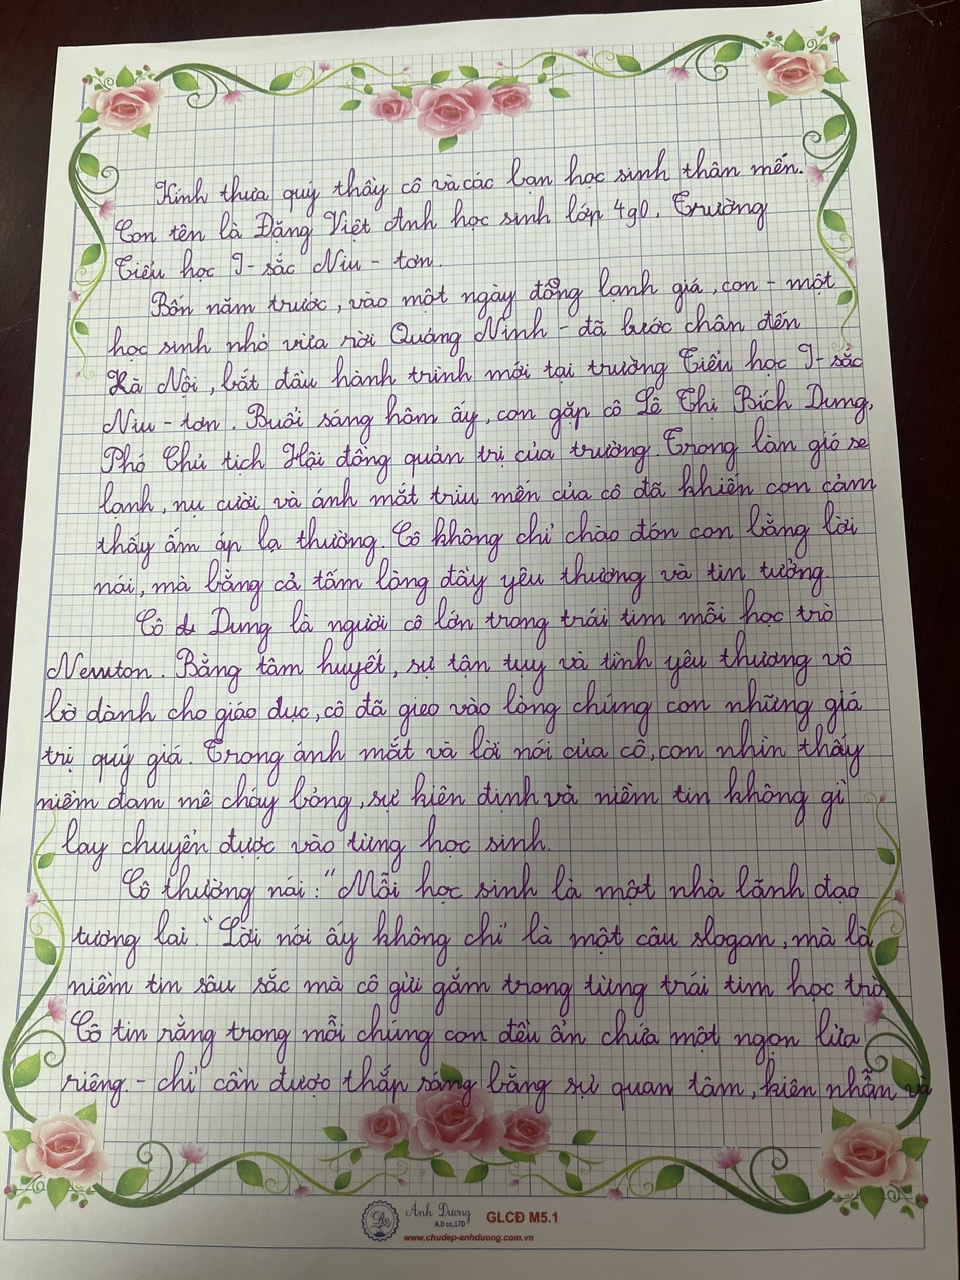 Kính thưa quý thầy cô và các bạn học sinh thân mến.
Con tên là Đặng Việt Anh học sinh lớp 4g0, Trường
Tiểu học I-sắc Niu-tơn.
Bốn năm trước, vào một ngày đông lạnh giá, con - một
học sinh nhỏ vừa rời Quảng Ninh - đã bước chân đến
Hà Nội, bắt đầu hành trình mới tại trường Tiểu học I-sắc
Niu-tơn. Buổi sáng hôm ấy, con gặp cô Lê Thị Bích Dung,
Phó Chủ tịch Hội đồng quản trị của trường. Trong làn gió se
lạnh, nụ cười và ánh mắt trìu mến của cô đã khiến con cảm
thấy ấm áp lạ thường. Cô không chỉ chào đón con bằng lời
nói, mà bằng cả tấm lòng đầy yêu thương và tin tưởng.
Cô Dung là người cô lớn trong trái tim mỗi học trò
Newton. Bằng tâm huyết, sự tận tụy và tình yêu thương vô
bờ dành cho giáo dục, cô đã gieo vào lòng chúng con những giá
trị quý giá. Trong ánh mắt và lời nói của cô, con nhìn thấy
niềm đam mê cháy bỏng, sự kiên định và niềm tin không gì
lay chuyển được vào từng học sinh.
Cô thường nói: "Mỗi học sinh là một nhà lãnh đạo
tương lai." Lời nói ấy không chỉ là một câu slogan, mà là
niềm tin sâu sắc mà cô gửi gắm trong từng trái tim học trò.
Cô tin rằng trong mỗi chúng con đều ẩn chứa một ngọn lửa
riêng - chỉ cần được thắp sáng bằng sự quan tâm, kiên nhẫn và
Ánh Dương
A.D co.,LTD
GLCĐ M5.1
www.chudep-anhduong.com.vn